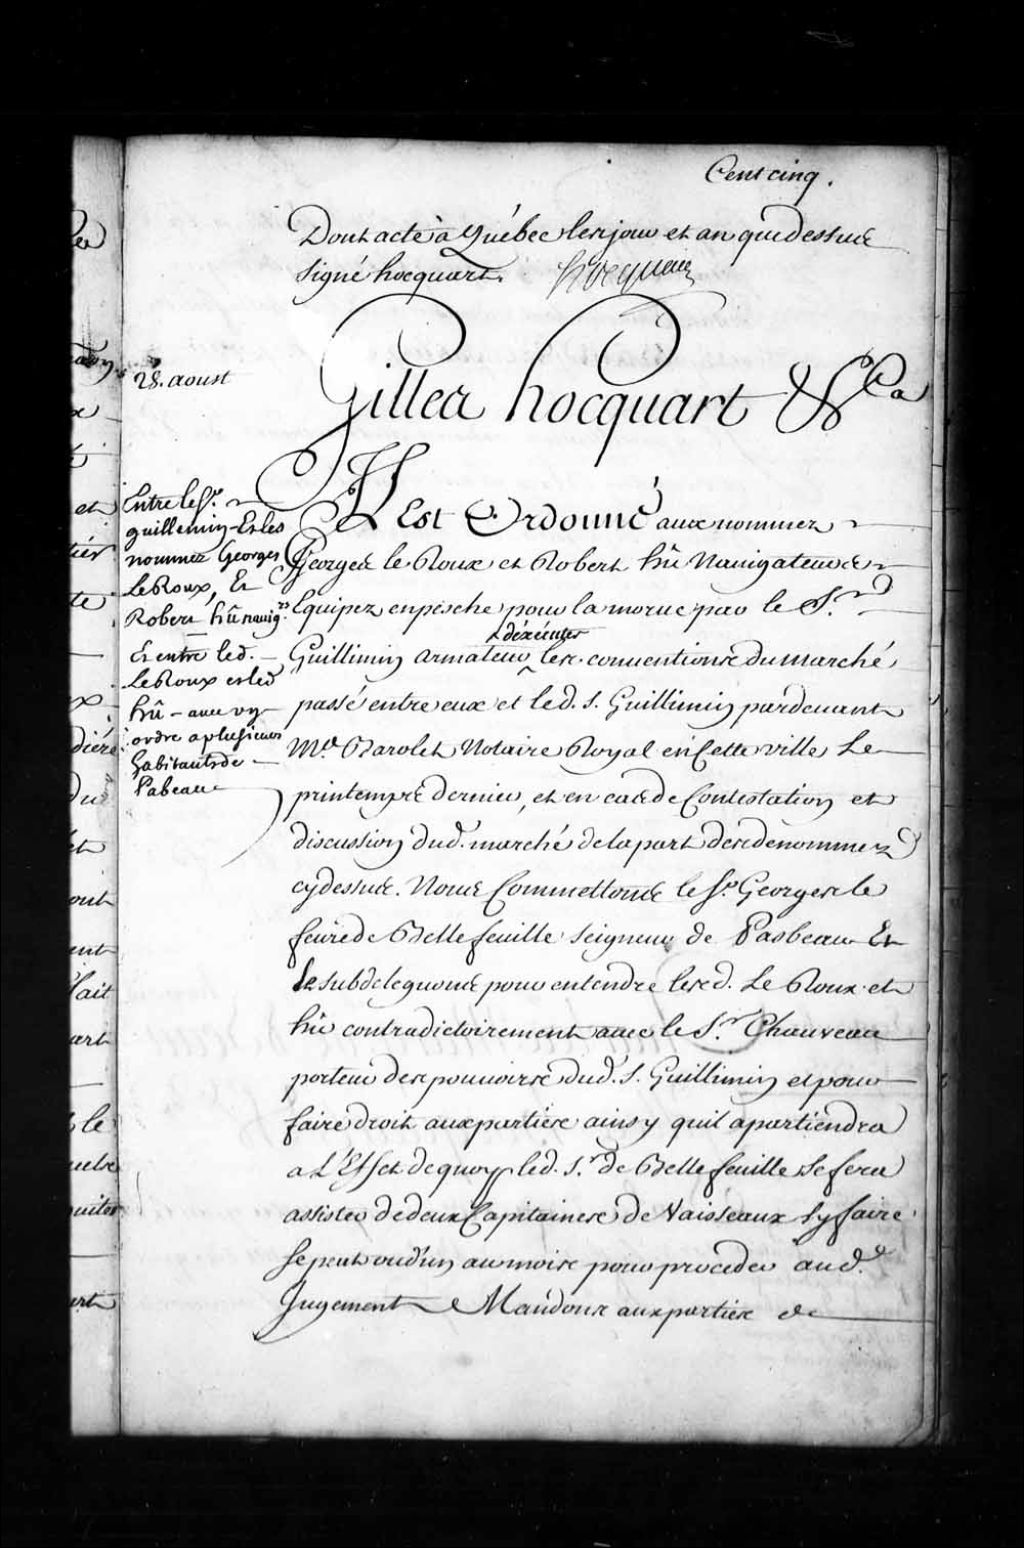 Cent cinq.
Dont acte à Québec les jour et an que dessus
signé hocquart. hocquart
28. aoust
Gilles hocquart &ca
Entre le Sr.
guillemin Et les
nommez Georges
LeRoux, Et
Robert hû navigrs
Et entre led.
LeRoux et led
hû - avec un
ordre a plusieurs
habitants de
Pabeau
Il Est Ordonné aux nommez
Georges le Roux et Robert hû Navigateurs
Equipez en pesche pour la morue par le S.r
Guillimin armateur d'éxécuter les conventions du marché
passé entre eux et led. S. Guillimin pardevant
Me. Barolet Notaire Royal en Cette ville Le
printemps dernier, et en cas de Contestation et
discussion dud. marché de la part des denommez
cy dessus. Nous Commettons le Sr. Georges le
feuvre de Bellefeuille seigneur de Pasbeau Et
Le subdeleguons pour entendre lesd. Le Roux et
hû contradictoirement avec le S.r Chauveau
porteur des pouvoirs dud. S. Guillimin et pour
faire droit aux parties ainsy quil apartiendra
a L'Effet de quoy led. S.r de Bellefeuille se fera
assister de deux Capitaines de Vaisseaux sy faire
se peut ou d'un au moins pour proceder aud.
Jugement Mandons aux parties de